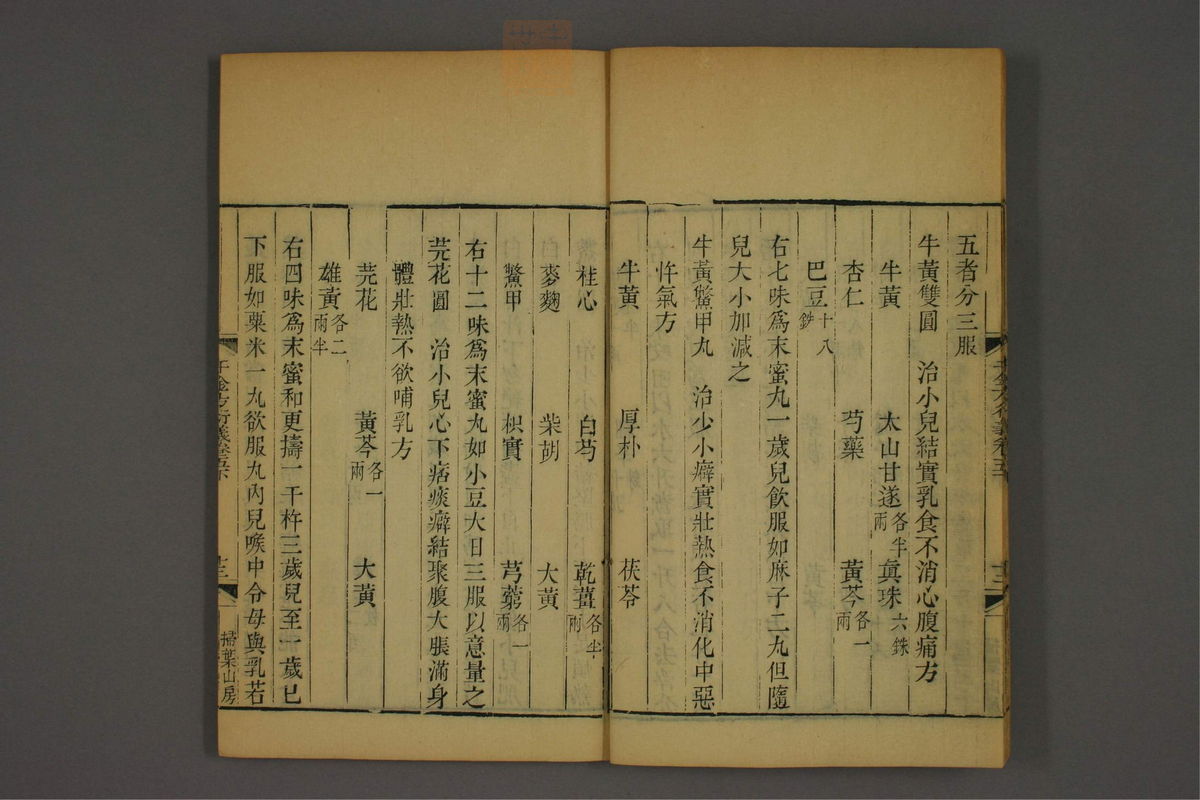 五者分三服
牛黃雙圓　治小兒結實乳食不消心腹痛方
牛黃　太山甘遂各半兩　真珠六銖
杏仁　芍藥　黃芩各一兩
巴豆十八銖
右七味爲末蜜丸一歲兒飲服如麻子二丸但隨
兒大小加減之
牛黃鱉甲丸　治少小癖實壯熱食不消化中惡
忤氣方
牛黃　厚朴　茯苓
桂心　白芍　乾薑各半兩
麥麴　柴胡　大黃
鱉甲　枳實　芎藭各一兩
右十二味爲末蜜丸如小豆大日三服以意量之
芫花圓　治小兒心下痞痰癖結聚腹大脹滿身
體壯熱不欲哺乳方
芫花　黃芩各一兩　大黃
雄黃各二兩半
右四味爲末蜜和更擣一千杵三歲兒至一歲已
下服如粟米一丸欲服丸內兒喉中令母與乳若
千金方衍義卷五下　十三　掃葉山房